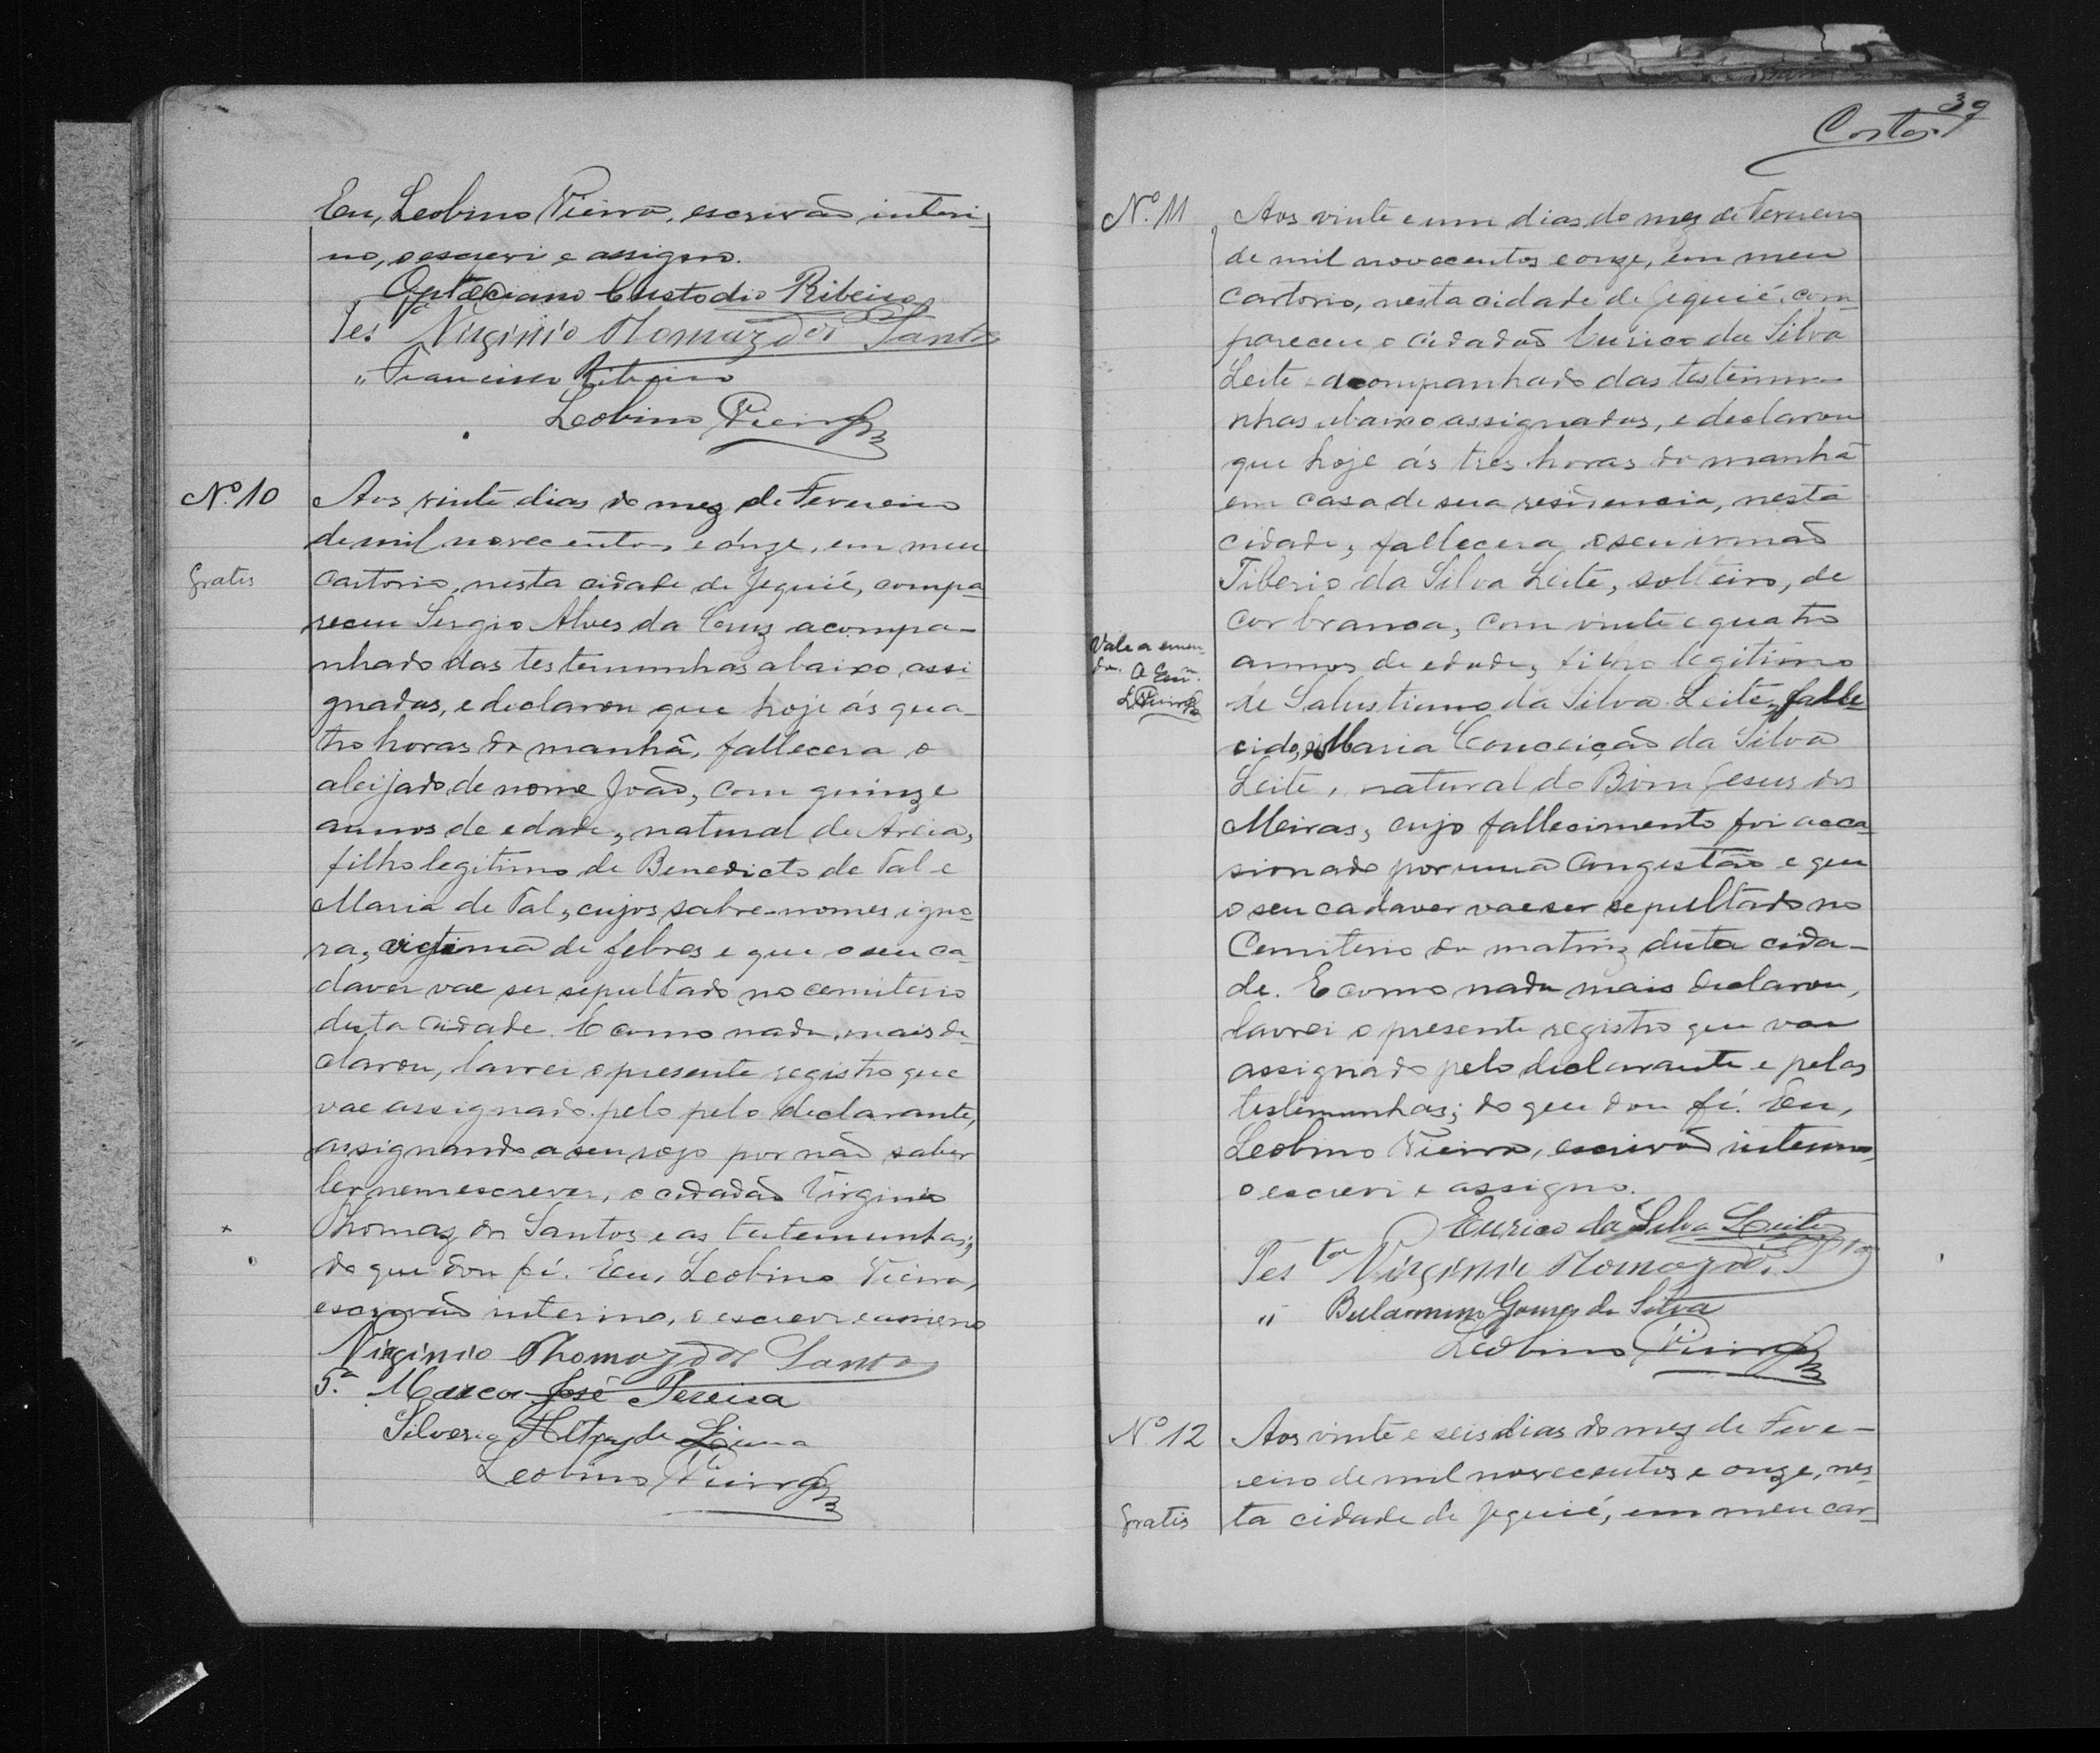 Eu, Leobino Vieira, escrivão interi-
no, o escrevi e assigno.
Custodio Ribeiro
Tes.ta Virginio Thomaz dos Santos
" Francisco Ribeiro
Leobino Vieira
Nº 10
Gratis
Aos vinte dias do mez de Fevereiro
de mil novecentos e onze, em meu
cartorio, nesta cidade de Jequié, compa-
receu Sergio Alves da Cruz acompa-
nhado das testemunhas abaixo assi-
gnadas, e declarou que hoje ás qua-
tro horas da manhã, fallecera o
aleijado de nome João, com quinze
annos de edade, natural de Areia,
filho legitimo de Benedicto de Tal e
Maria de Tal, cujos sobre-nomes igno-
ra, victima de febres e que o seu ca-
daver vae ser sepultado no cemiterio
desta cidade. E como nada mais de-
clarou, lavrei o presente registro que
vae assignado pelo pelo declarante,
assignando a seu rogo por não saber
ler nem escrever, o cidadão Virginio
Thomaz dos Santos e as testemunhas;
do que dou fé. Eu, Leobino Vieira,
escrivão interino, o escrevi e assigno
Virginio Thomaz dos Santos
T.a Marcos José Pereira
Silverio de Lima
Leobino Vieira
39
Costa
Nº 11
Aos vinte e um dias do mez de Fevereiro
de mil novecentos e onze, em meu
cartorio, nesta cidade de Jequié, com-
pareceu o cidadão Eurico da Silva
Leite acompanhado das testemu-
nhas abaixo assignadas, e declarou
que hoje ás tres horas da manhã
em casa de sua residencia, nesta
cidade, fallecera o seu irmão
Tiberio da Silva Leite, solteiro, de
cor branca, com vinte e quatro
annos de edade, filho legitimo
de Salustiano da Silva Leite, falle-
cido, e Maria Conceição da Silva
Leite, natural do Bom Jesus dos
Meiras, cujo fallecimento foi occa-
sionado por uma congestão e que
o seu cadaver vae ser sepultado no
Cemiterio da matriz desta cida-
de. E como nada mais declarou,
lavrei o presente registro que vae
assignado pelo declarante e pelas
testemunhas; do que dou fé. Eu,
Leobino Vieira, escrivão interino,
o escrevi e assigno.
Vale a emen-
da. O Esc.
LVieira
Eurico da Silva Leite
Tes.ta Virginio Thomaz dos Stos
" Belarmino Gomes da Silva
Leobino Vieira
Nº 12
Gratis
Aos vinte e seis dias do mez de Feve-
reiro de mil novecentos e onze, nes-
ta cidade de Jequié, em meu car-